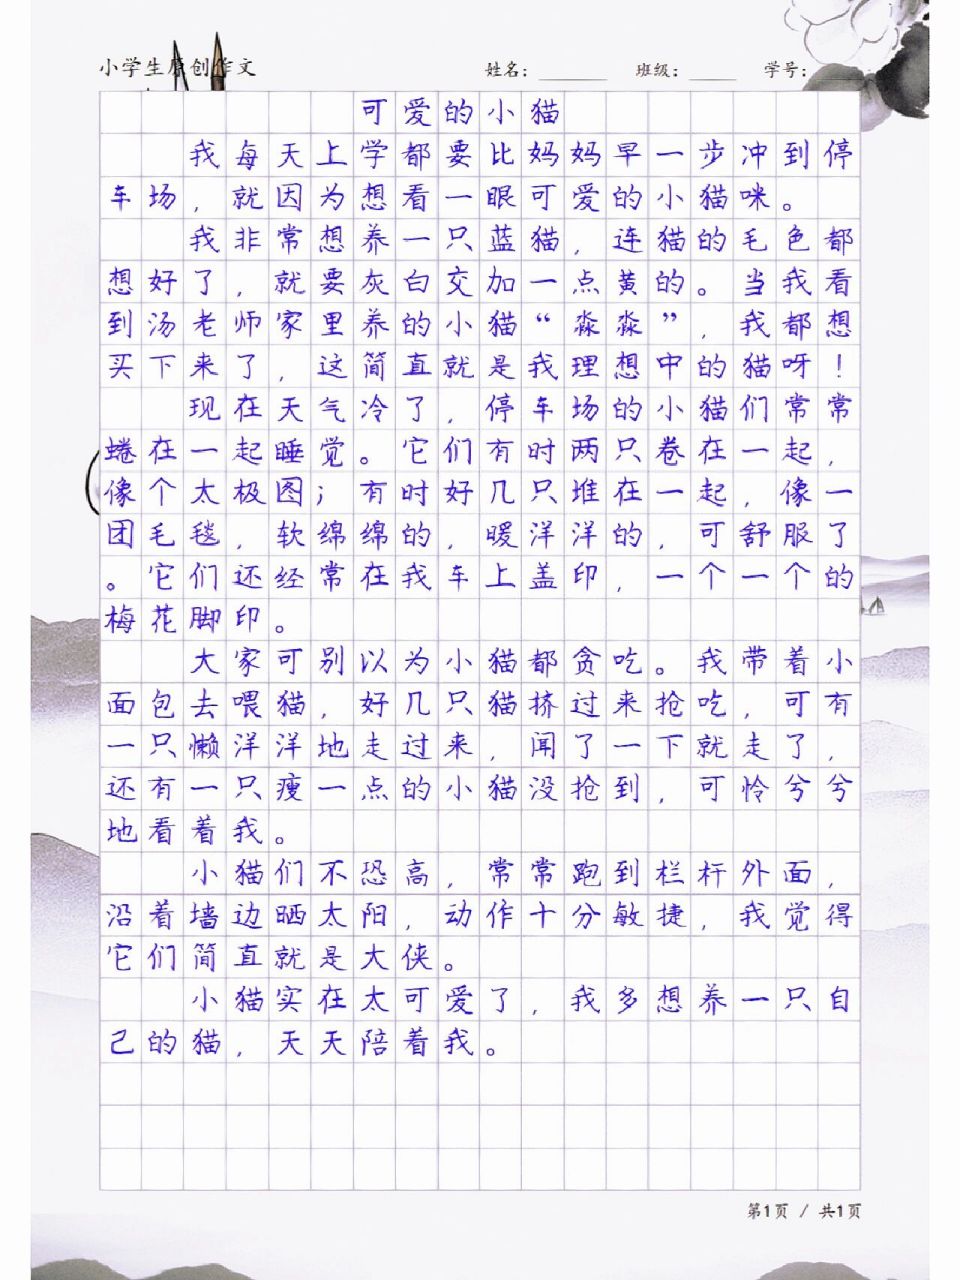 小学生原创作文 姓名：______ 班级：____ 学号：
可爱的小猫
我每天上学都要比妈妈早一步冲到停
车场，就因为想看一眼可爱的小猫咪。
我非常想养一只蓝猫，连猫的毛色都
想好了，就要灰白交加一点黄的。当我看
到汤老师家里养的小猫“淼淼”，我都想
买下来了，这简直就是我理想中的猫呀！
现在天气冷了，停车场的小猫们常常
蜷在一起睡觉。它们有时两只卷在一起，
像个太极图；有时好几只堆在一起，像一
团毛毯，软绵绵的，暖洋洋的，可舒服了
。它们还经常在我车上盖印，一个一个的
梅花脚印。
大家可别以为小猫都贪吃。我带着小
面包去喂猫，好几只猫挤过来抢吃，可有
一只懒洋洋地走过来，闻了一下就走了，
还有一只瘦一点的小猫没抢到，可怜兮兮
地看着我。
小猫们不恐高，常常跑到栏杆外面，
沿着墙边晒太阳，动作十分敏捷，我觉得
它们简直就是大侠。
小猫实在太可爱了，我多想养一只自
己的猫，天天陪着我。
第1页 / 共1页